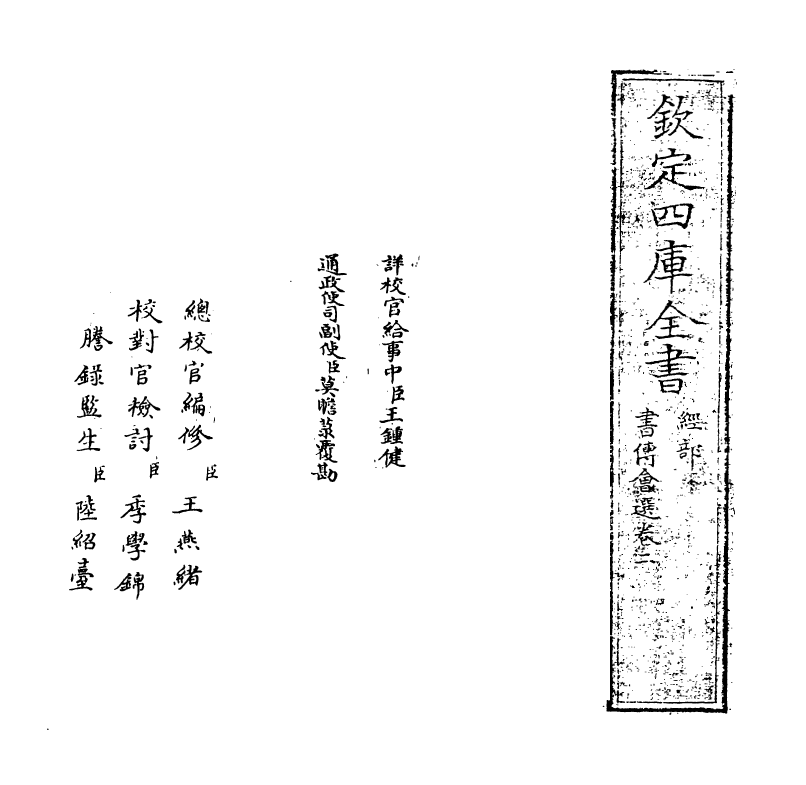 欽定四庫全書
經部
書傳會選卷二
詳校官給事中臣王鍾健
通政使司副使臣莫瞻菉覆勘
總校官編修臣王燕緒
校對官檢討臣季學錦
謄錄監生臣陸紹臺